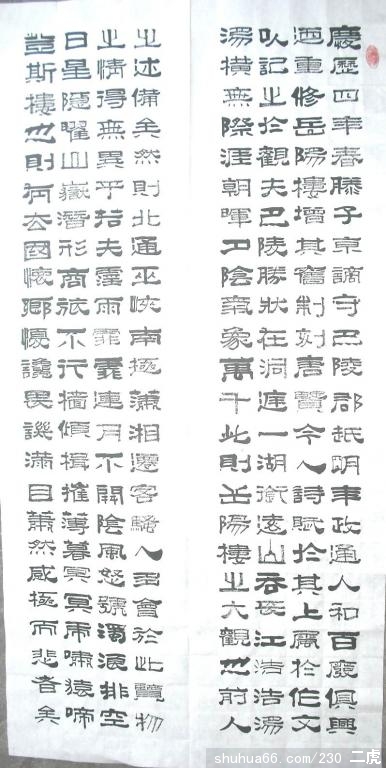 慶歷四年春滕子京謫守巴陵郡越明年政通人和百廢俱興
迺重修岳陽樓增其舊制刻唐賢今人詩賦於其上屬於作文
以記之於觀夫巴陵勝狀在洞庭一湖銜遠山吞長江浩浩湯
湯橫無際涯朝暉夕陰氣象萬千此則岳陽樓之大觀也前人
之述備矣然則北通巫峽南極瀟湘遷客騷人多會於此覽物
之情得無異乎若夫霪雨霏霏連月不開陰風怒號濁浪排空
日星隱曜山嶽潛形商旅不行檣傾楫摧薄暮冥冥虎嘯猿啼
登斯樓也則有去國懷鄉憂讒畏譏滿目蕭然感極而悲者矣
shuhua66.com/230 二虎